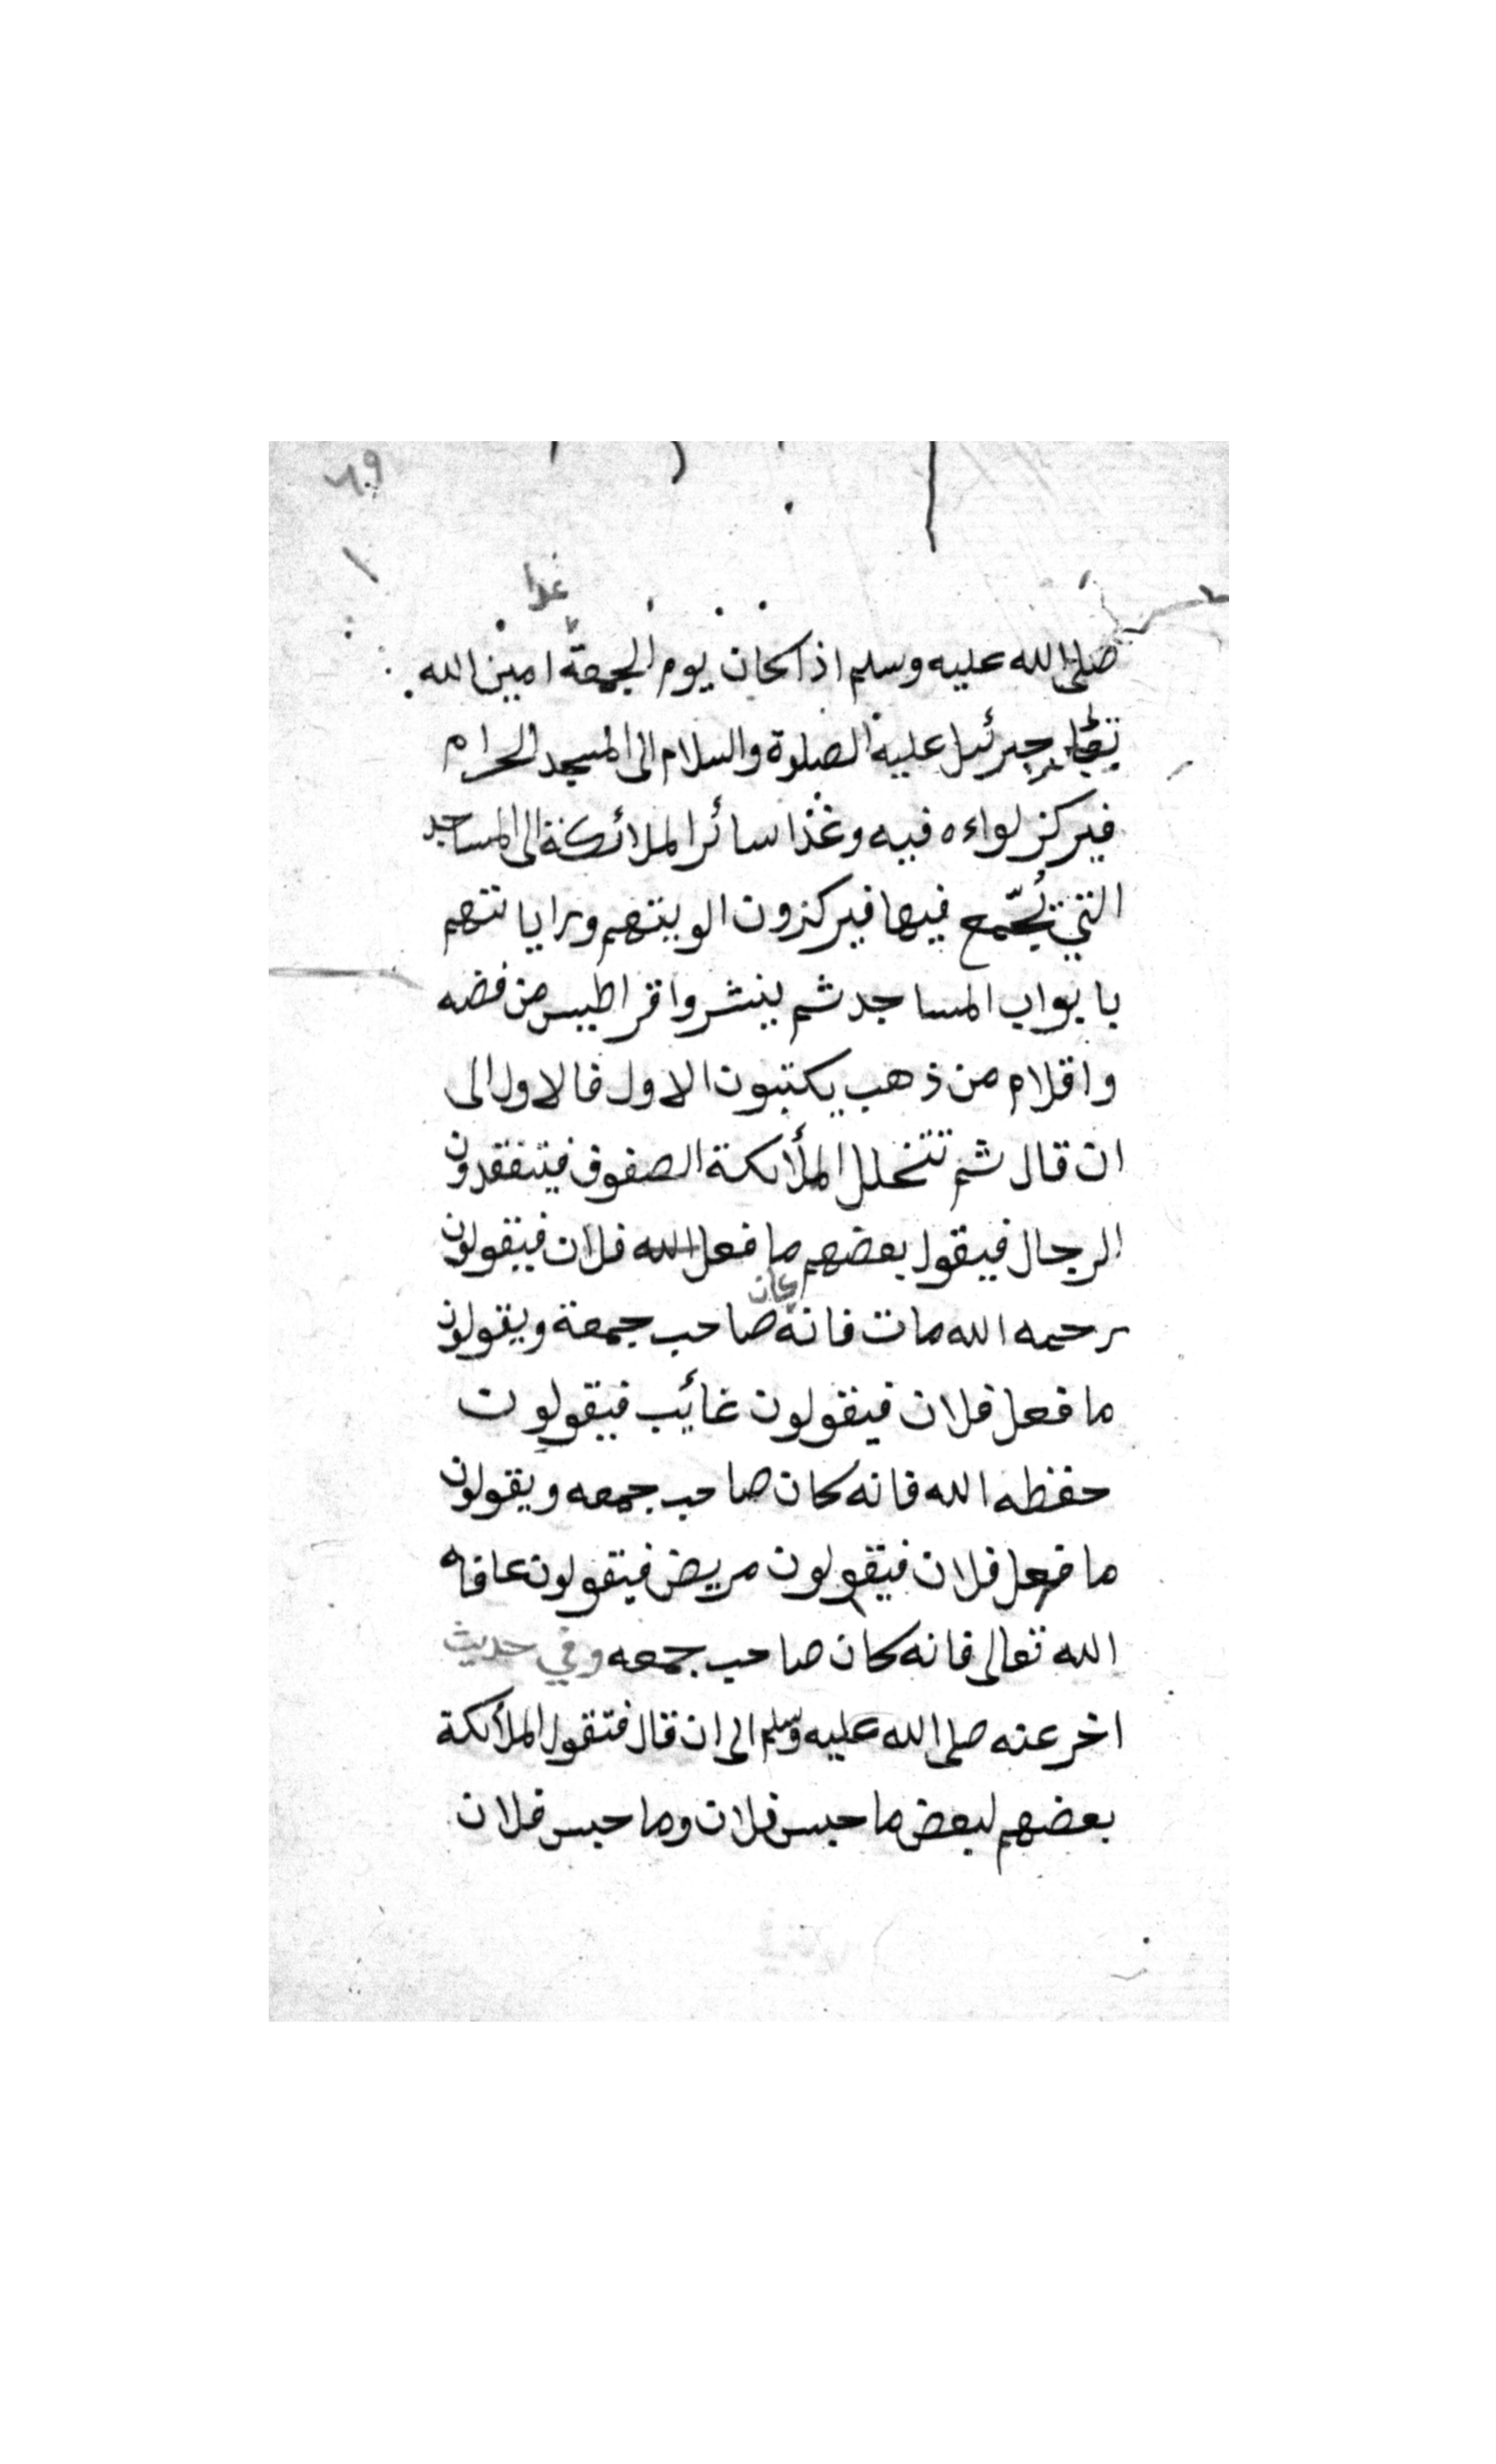 ٦٩
غدا
صلى الله عليه وسلم اذا كان يوم الجمعة امين الله
جبرئيل عليه الصلوة والسلام الى المسجد الحرام
فيركز لواءه فيه وغدا سائر الملائكة الى المساجد
التي يُجمّع فيها فيركزون الويتهم وراياتهم
بابواب المساجد ثم ينشروا قراطيس من فضه
واقلام من ذهب يكتبون الاول فالاول الى
ان قال ثم تتخلل الملأئكة الصفوف فيتفقدون
الرجال فيقول بعضهم ما فعل الله فلان فيقولون
رحمه الله مات فانه كان صاحب جمعة ويقولون
ما فعل فلان فيقولون غائب فيقولون
حفظه الله فانه كان صاحب جمعه ويقولون
ما فعل فلان فيقولون مريض فيقولون عافاه
الله تعالى فانه كان صاحب جمعه وفي حديث
اخر عنه صلى الله عليه وسلم الى ان قال فتقول الملأئكة
بعضهم لبعض ما حبس فلان وما حبس فلان